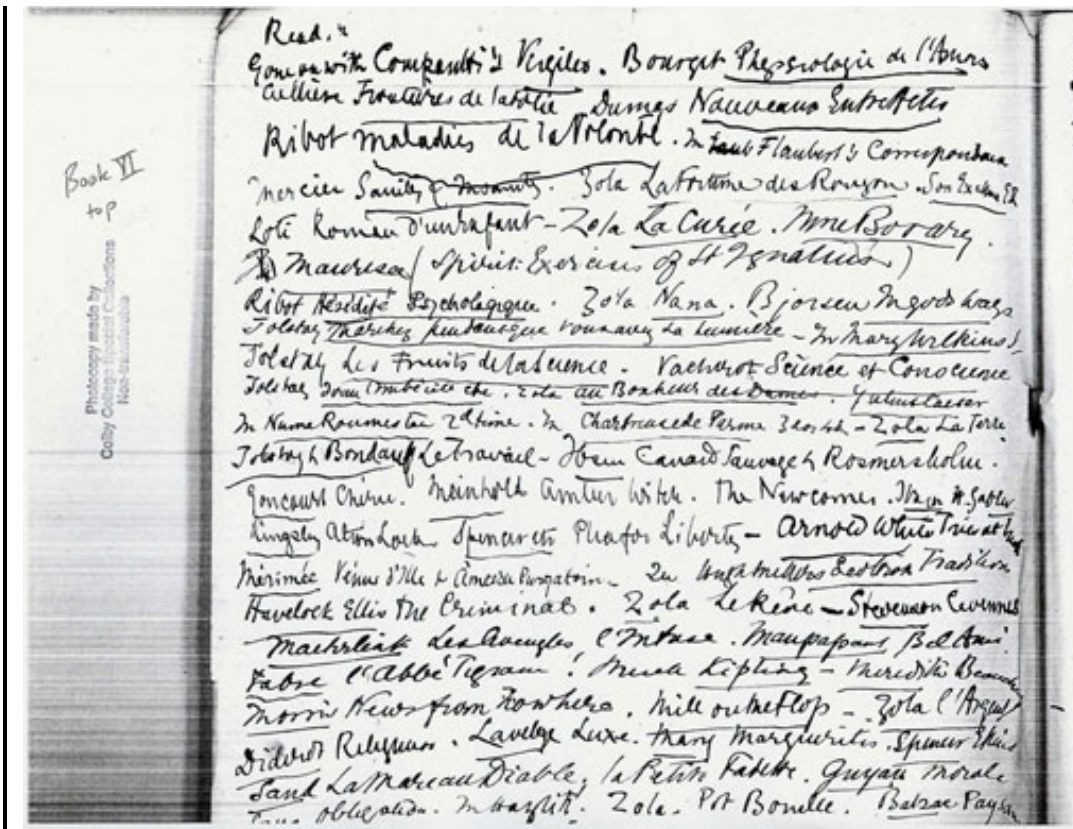 Book VI
top
Photocopy made by
Colby College Special Collections
Non-transferable
Read.
Gone on with Comparetti's Virgilio. Bourget Physiologie de l'Amour
Cullère Frontières de la folie Dumas Nouveaux Entre Actes
Ribot Maladies de la Volonté. In Flaubert's Correspondance
Mercier Sanity & Insanity. Zola La Fortune des Rougon. Son Exc. Eug. R
Loti Roman d'un enfant - Zola La Curée. Mme Bovary.
Mauresa (Spirit. Exercises of St Ignatius)
Ribot Hérédité Psychologique. Zola Nana. Bjorsen In gods ways
Tolstoy Marchez pendant que vous avez la lumière - In Mary Wilkins
Tolstoy Les Fruits de la Science. Vacherot Science et Conscience
Tolstoy Ivan l'Imbécile etc. Zola au Bonheur des Dames. Julius Caesar
In Numa Roumestan 2d time. In Chartreuse de Parme - Zola La Terre
Tolstoy & Bondareff Le Travail - Ibsen Canard Sauvage & Rosmersholm.
Goncourt Chérie. Meinhold Amber Witch. The Newcomes. Ibsen H. Gabler
Kingsley Alton Locke Spencer etc Plea for Liberty - Arnold White Tries at
Mérimée Vénus d'Ille & Ames du Purgatoire - In Hugh Millers Tradition
Havelock Ellis The Criminal. Zola Le Rêve - Stevenson Cevennes
Maeterlinck Les Aveugles, l'Intruse. Maupassant Bel Ami.
Fabre l'Abbé Tigrane! Much Kipling - Meredith Beauch
Morris News from Nowhere. Mill on the Flop - Zola l'Argent
Diderot Religieuse. Laveleye Luxe. Mary Marguerites. Spencer
Sand La Mare au Diable, la Petite Fadette. Guyau Morale
obligation. In Hazlitt. Zola. Pot Bouille. Balzac Paysans